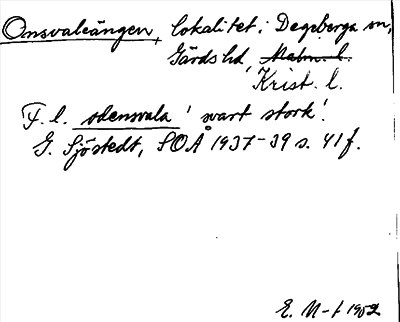 Onsvalaängen, lokalitet i Degeberga sn,
Gärds hd, Malm. l.
Krist. l.
F. l. odensvala 'svart stork'.
G. Sjöstedt, SOÅ 1937-39 s. 41 f.
E. N-t 1952